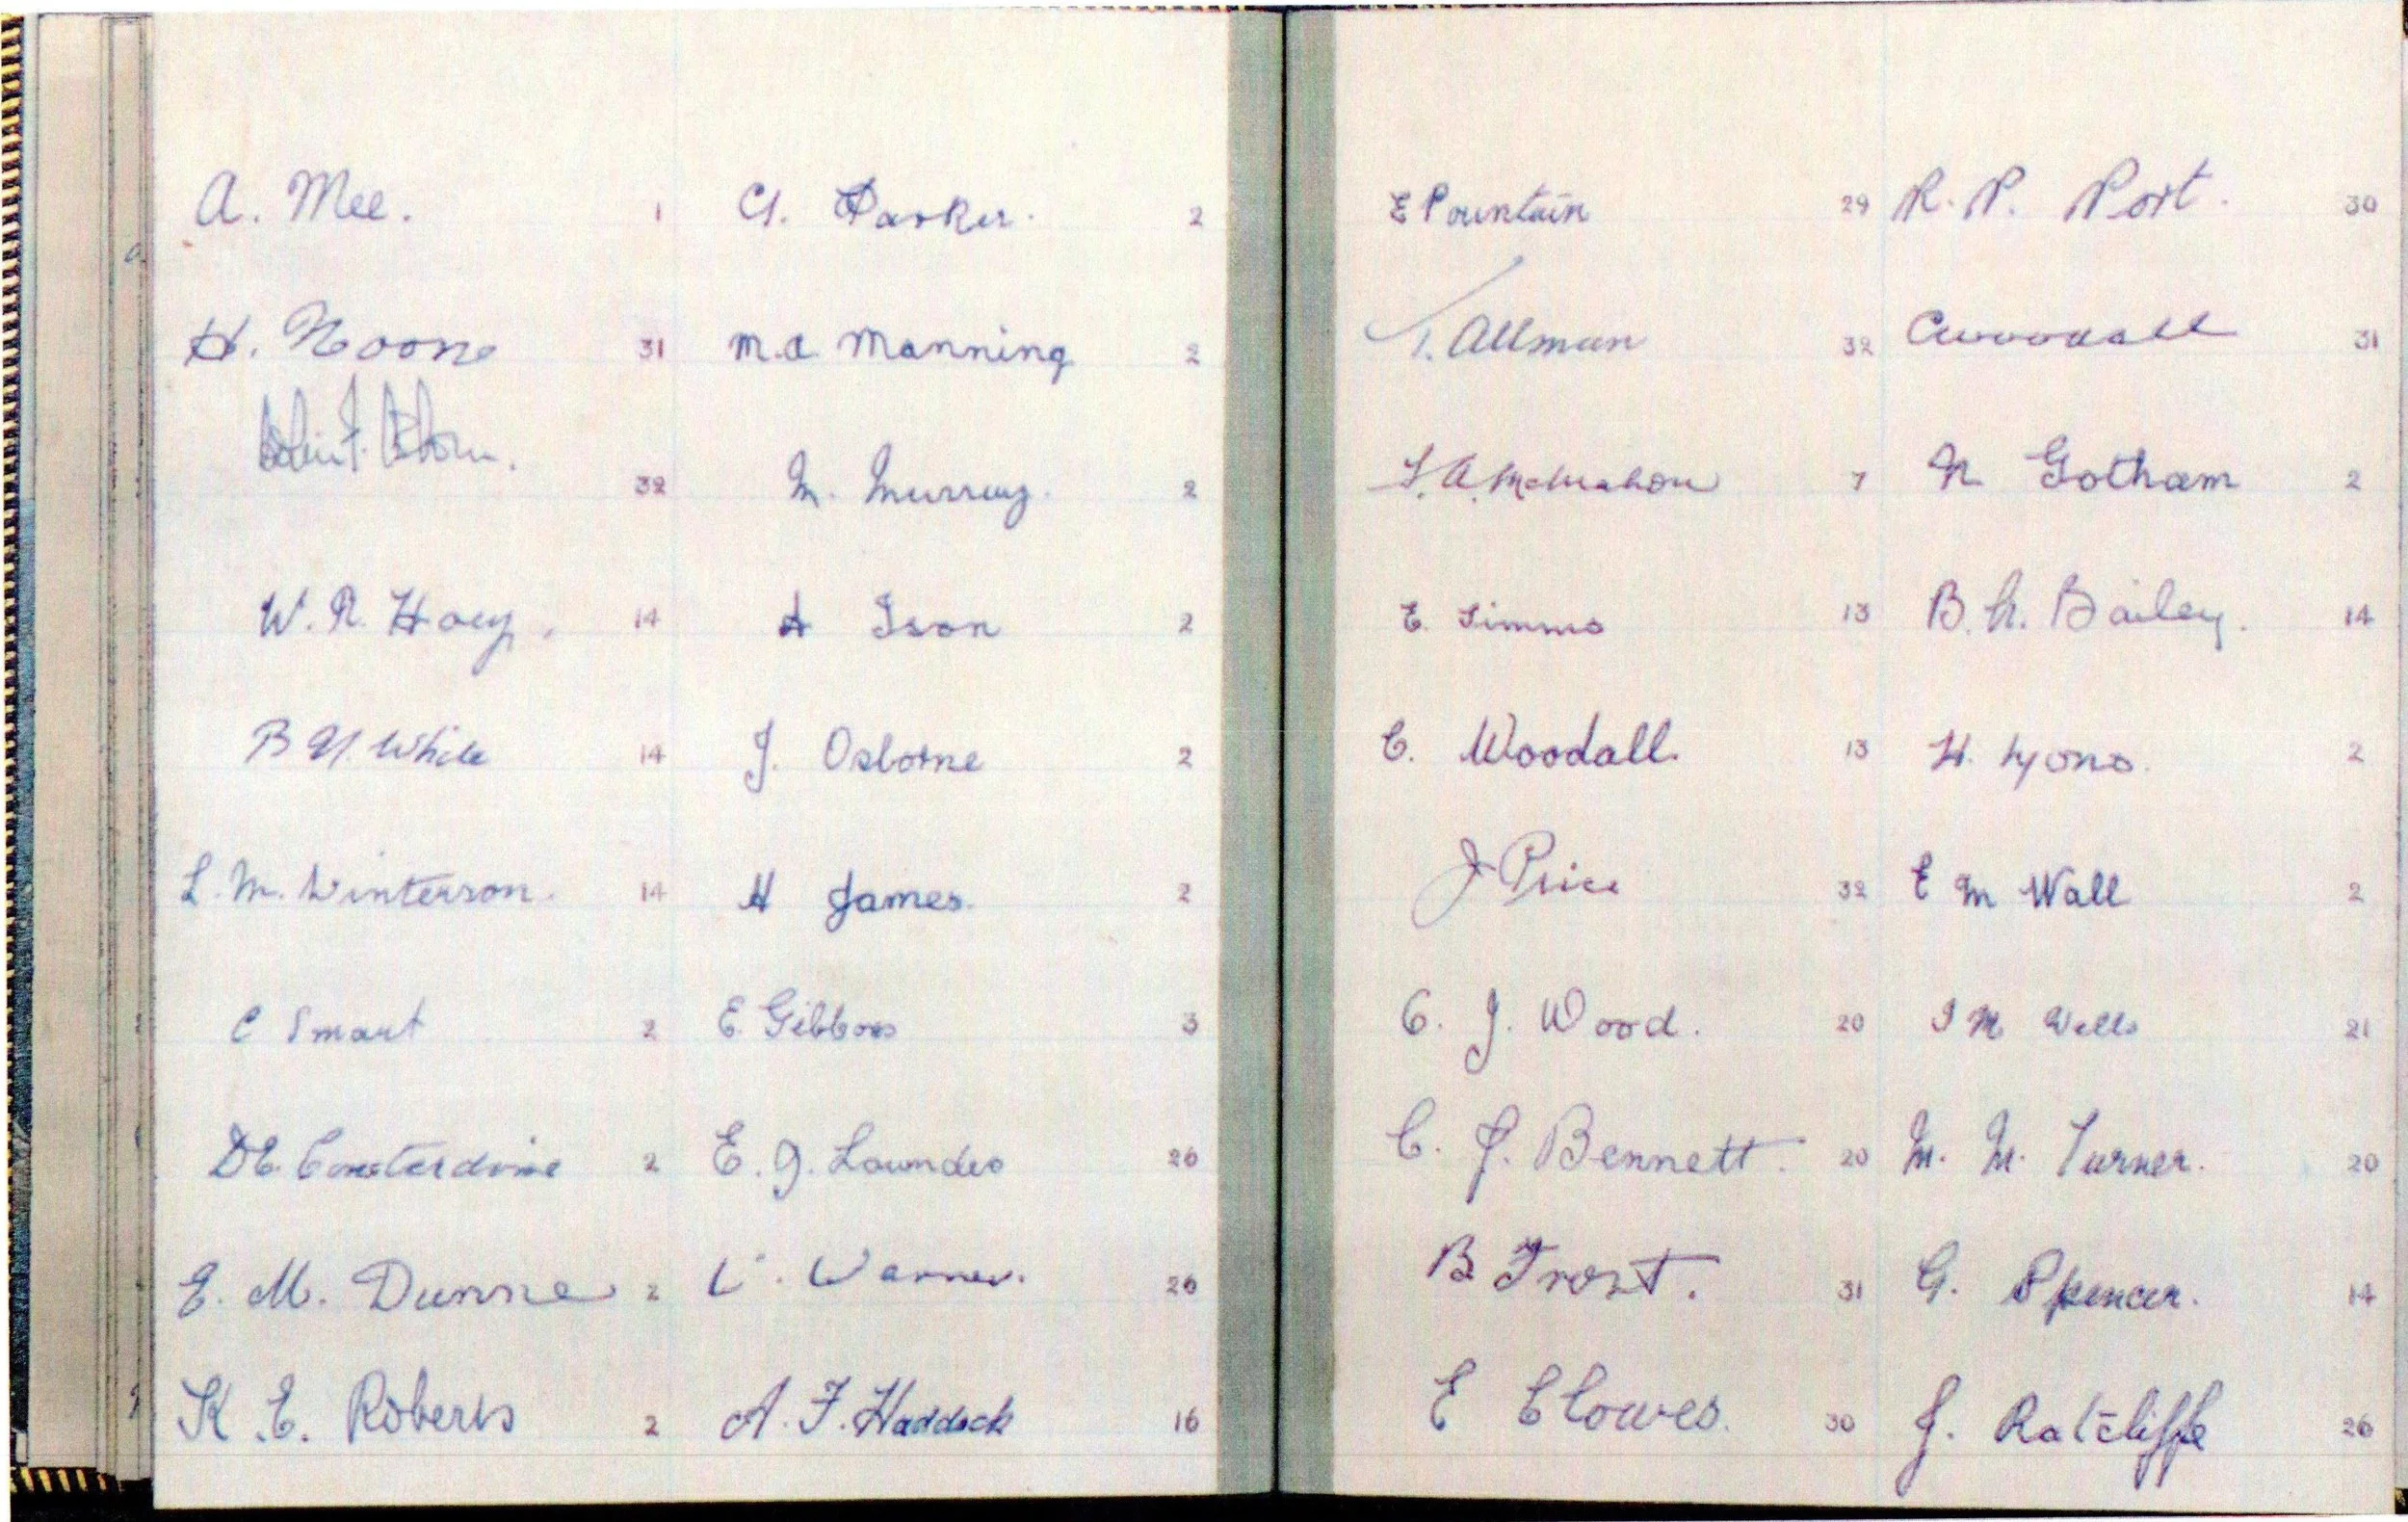 A. Mee. 1 A. Parker. 2
H. Noone 31 M.A Manning 2
32 M. Murray. 2
W. R. Hoey. 14 A Ison 2
B White 14 J. Osborne 2
L. M. Winterson. 14 H James. 2
C Smart 2 E. Gibbons 3
DE Consterdine 2 E. J. Lowndes 26
E. M. Dunne 2 Warner. 26
K. E. Roberts 2 A. F. Haddock 16
E Pountain 29 R. P. Port. 30
T. Allman 32 C Woodall 31
A. McMahon 7 N Gotham 2
E. Simms 13 B. A. Bailey. 14
C. Woodall. 13 H. Lyons. 2
J Price 32 E M Wall 2
C. J. Wood. 20 I M Wells 21
C. J. Bennett. 20 M. M. Turner. 20
B Frost. 31 G. Spencer. 14
E Clowes. 30 J. Ratcliffe 26